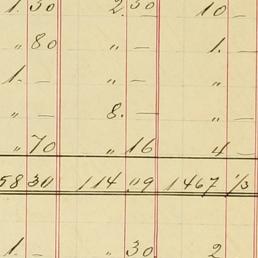 1. 30 2. 30 10 —
" 80 " — 1. —
1. — " — " —
" — 8. — " —
" 70 " 16 4 —
5830 114 "9 1467 1/3
1. — " 30 2